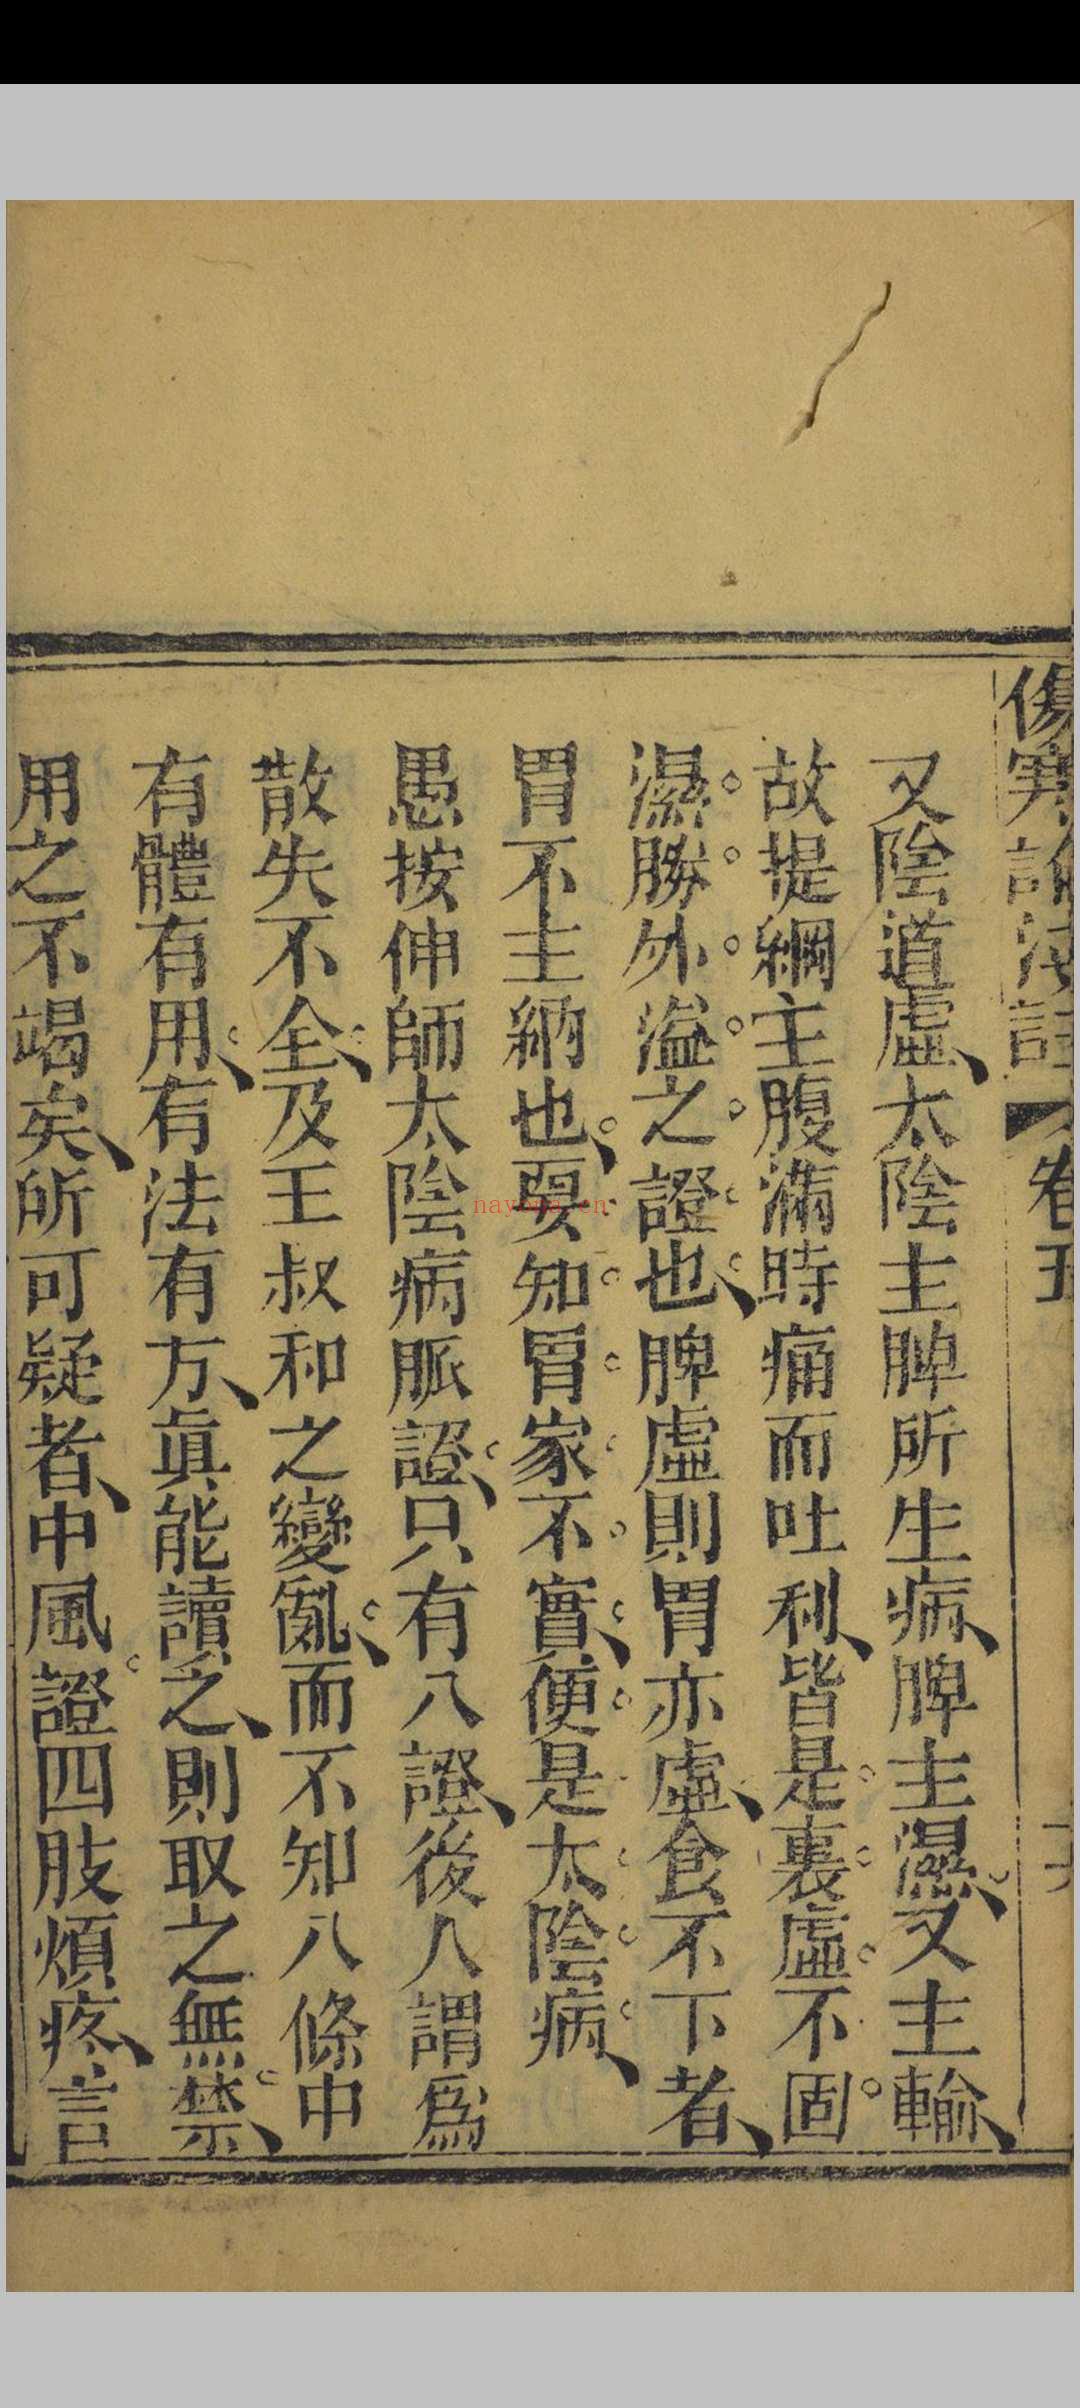 傷寒論注 卷五
又陰道虛太陰主脾所生病脾主濕又主輸
故提綱主腹滿時痛而吐利皆是裏虛不固
濕勝外溢之證也脾虛則胃亦虛食不下者
胃不主納也要知胃家不實便是太陰病
愚按仲師太陰病脈證只有八證後人謂爲
散失不全及王叔和之變亂而不知八條中
有體有用有法有方眞能讀之則取之無禁
用之不竭矣所可疑者中風證四肢煩疼言
nayona.cn